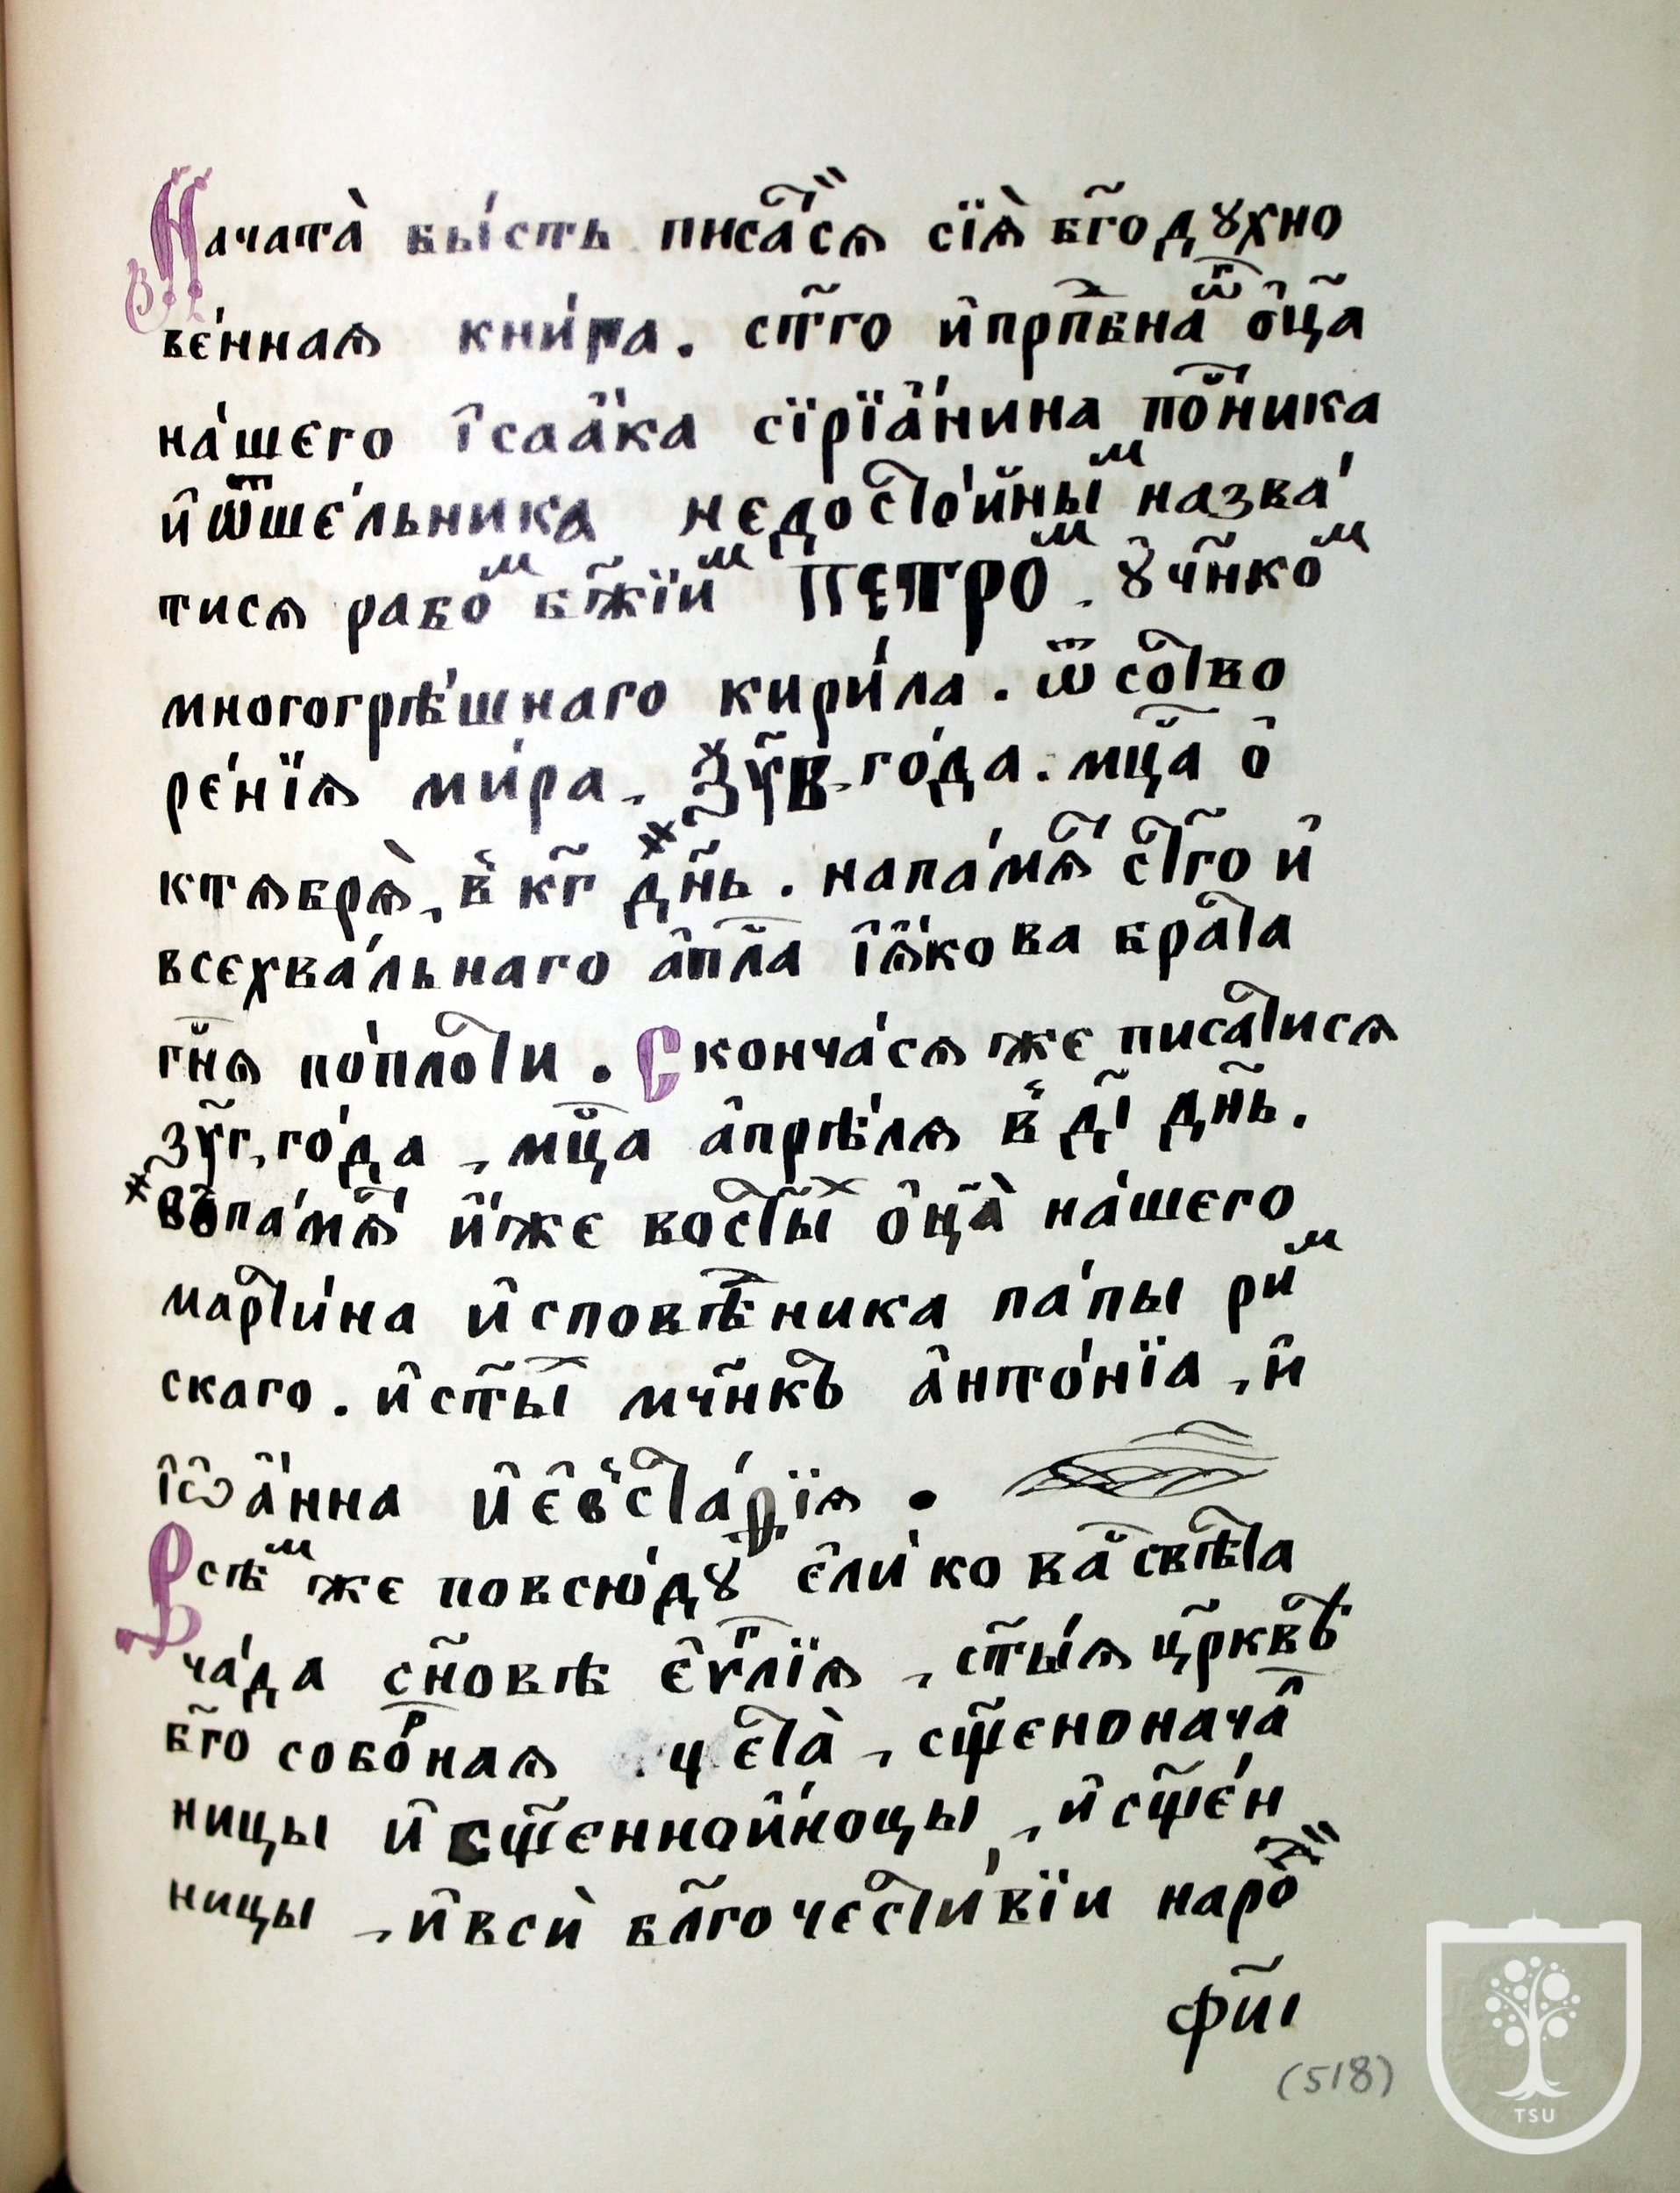 Начата̀ бы́сть писа́тⷭ҇ѧ сїѧ̀ бг҃одꙋхно
ве́ннаѧ кни́га. ст҃го и҆прпⷣбнаⷢ҇ ѻ҆ц҃а
на́шего і҆саа́ка сїрїа́нина по́ⷭ҇ника
и҆ѿше́льника недосто́йныⷨ назва́
тисѧ рабоⷨ бж҃їиⷨ Петроⷨ. ᲂу҆чн҃икоⷨ
многогрѣ́шнаго кири́ла. ѿ сотво
ре́нїѧ ми́ра. ҂зу҃в. го́да. мцⷭ҇а о҆
ктѧбрѧ̀, в̾ кг҃ дн҃ь. напа́мѧⷮ ст҃го и҆
всехва́льнаго а҆пⷭ҇ла і҆ѧ́кова брата
гдⷭ҇нѧ по́плоти. Сконча́сѧ же писатисѧ
҂зу҃г, го́да, мцⷭ҇а а҆прѣ́лѧ в̾ д҃і дн҃ь.
въпа́мѧⷮ и҆́же восты́ⷯ ѻ҆ц҃а̀ на́шего
марти́на и҆сповѣⷣника па́пы риⷨ
скаго. и҆ст҃ыⷯ мч҃нкъ а҆нто́нїа, и҆
і҆ѡа́нна и҆ є҆в̾ста́рїѧ.
Всѣⷨ же повсю́дꙋ є҆ли́ко ваⷭ҇ свѣта
ча́да сн҃овѣ є҆ѵⷢ҇лїѧ, ст҃ы́ѧ цр҃квъ
бг҃о собоⷬ҇наѧ чета̀, сщ҃енонача́ⷧ
ницы и҆ сщ҃еннои҆́ноцы, и҆ сщ҃е́н
ницы, и҆ всѝ бл҃гочести́вїи нароⷣ
фи҃і
(518)
TSU